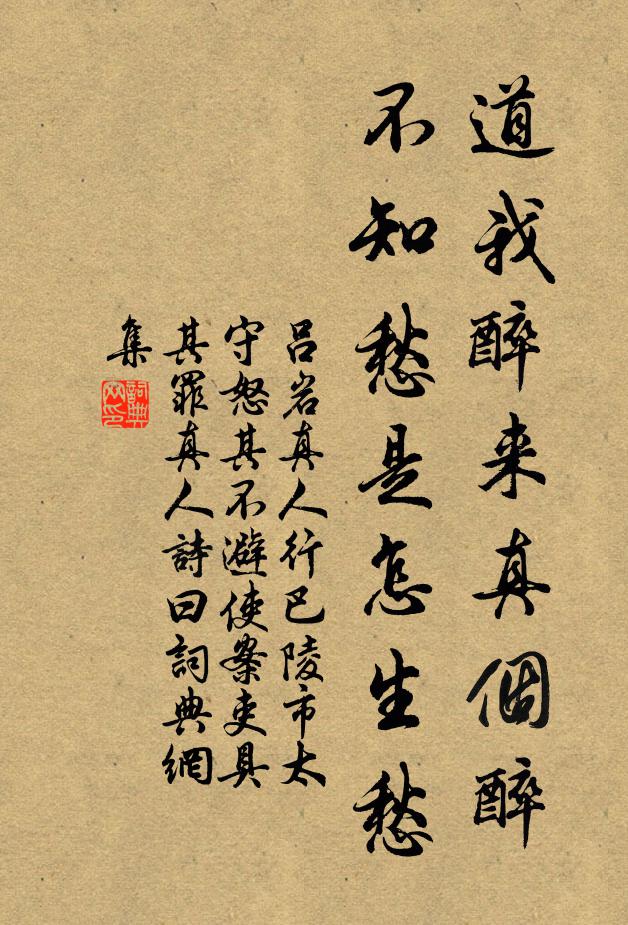 道我醉来真個醉
不知愁是怎生愁
吕岩真人行巴陵市太
守怒其不避使案吏具
其罪真人詩曰詞典網
集
詞典
网印